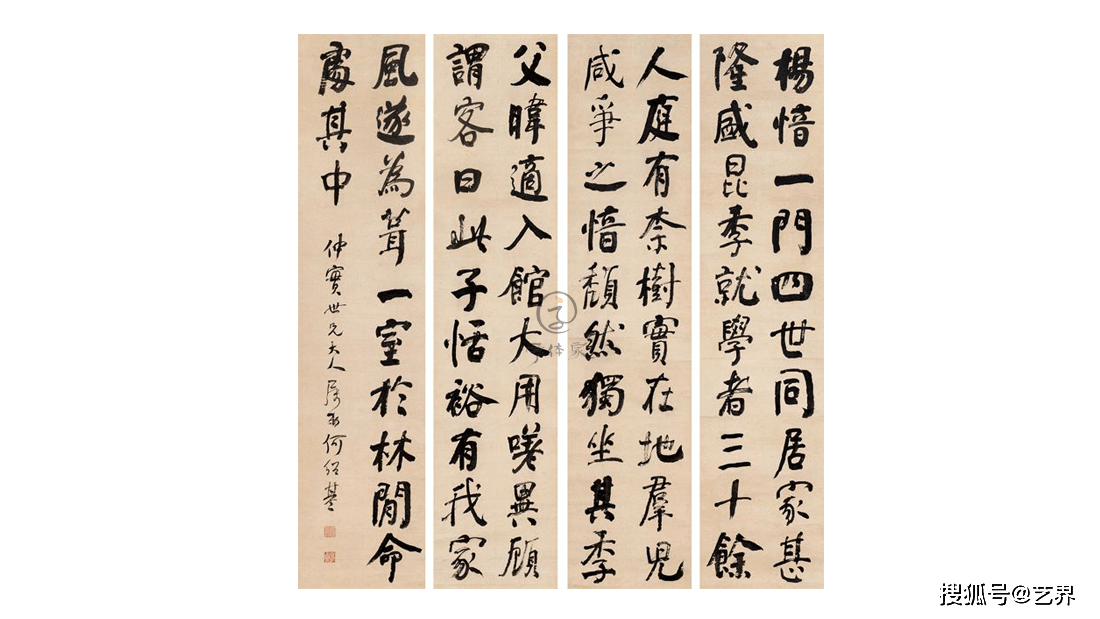 楊愔一門四世同居家甚
隆盛昆季就學者三十餘
人庭有柰樹實在地羣兒
咸爭之愔頹然獨坐其季
父暐適入館大用嗟異顧
謂客曰此子恬裕有我家
風遂為葺一室於林閒命
處其中
仲實世兄大人屬 何紹基
搜狐号@艺界